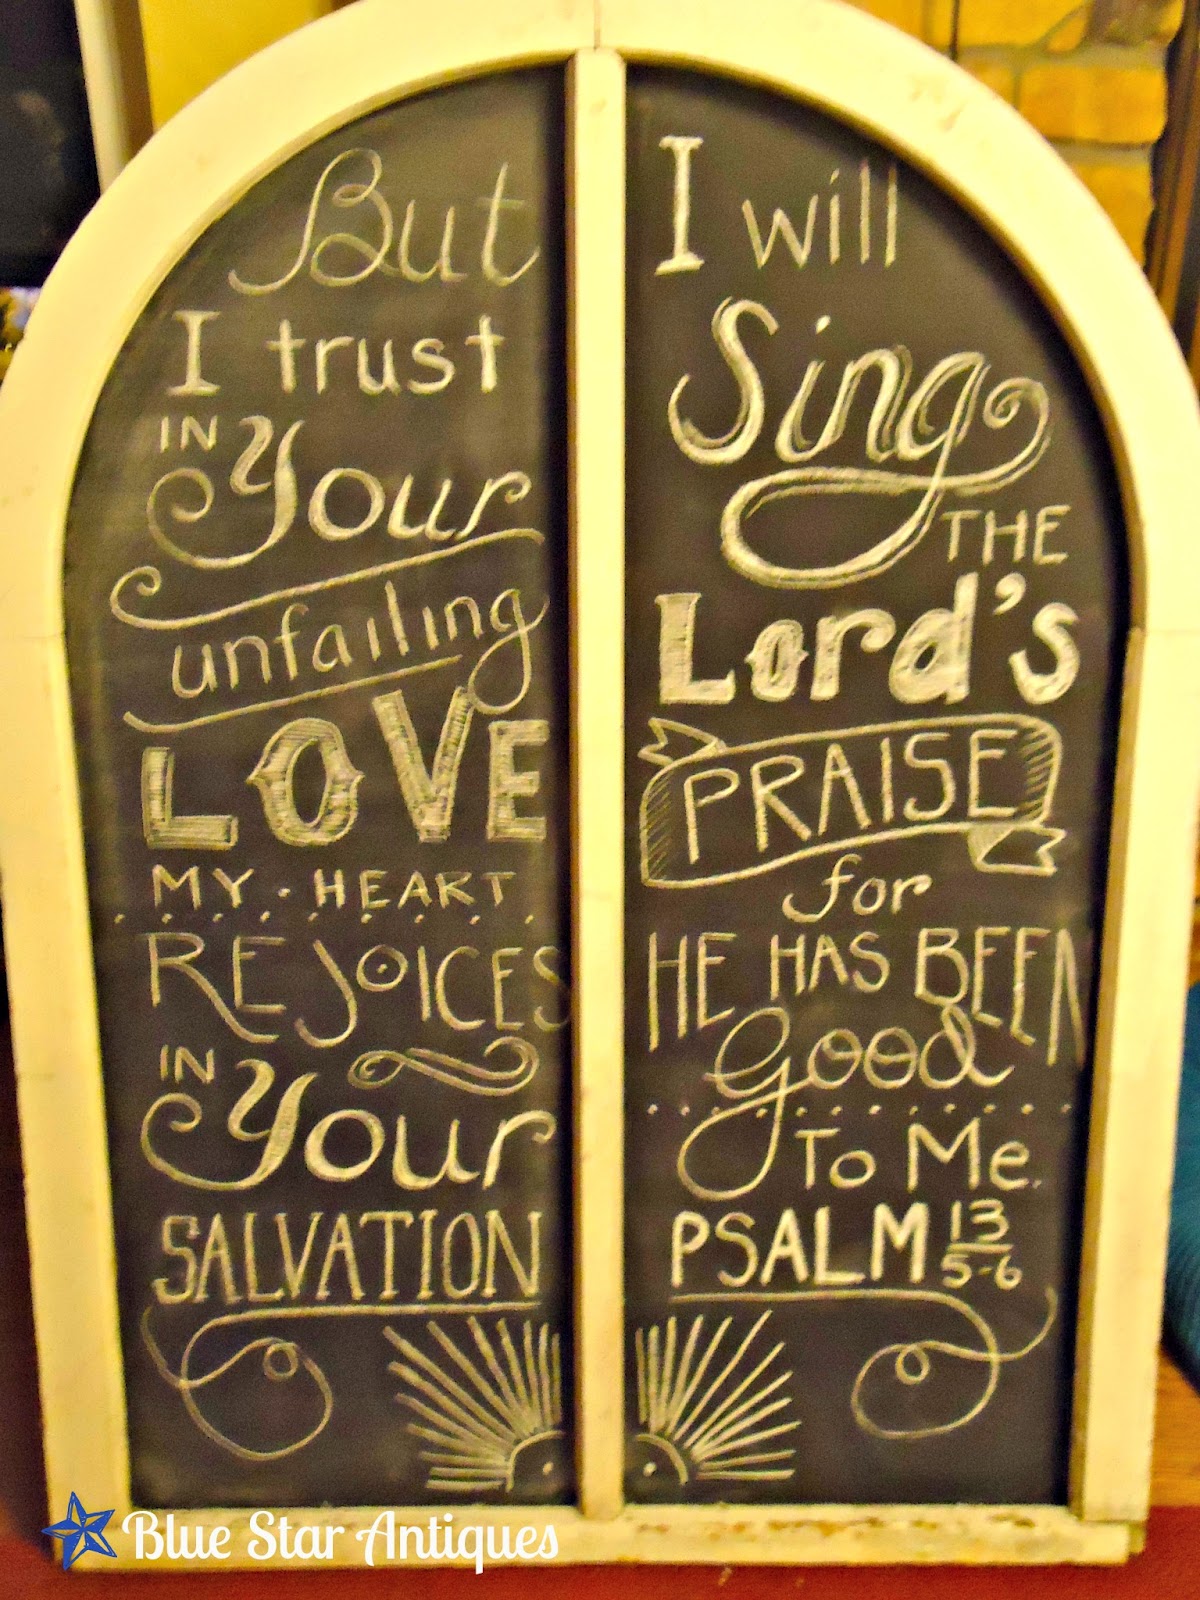 But
I trust
IN Your
unfailing
LOVE
MY · HEART
REJOICES
IN Your
SALVATION
I will
Sing
THE
Lord's
PRAISE
for
HE HAS BEEN
Good
To Me.
PSALM 13
5-6
Blue Star Antiques